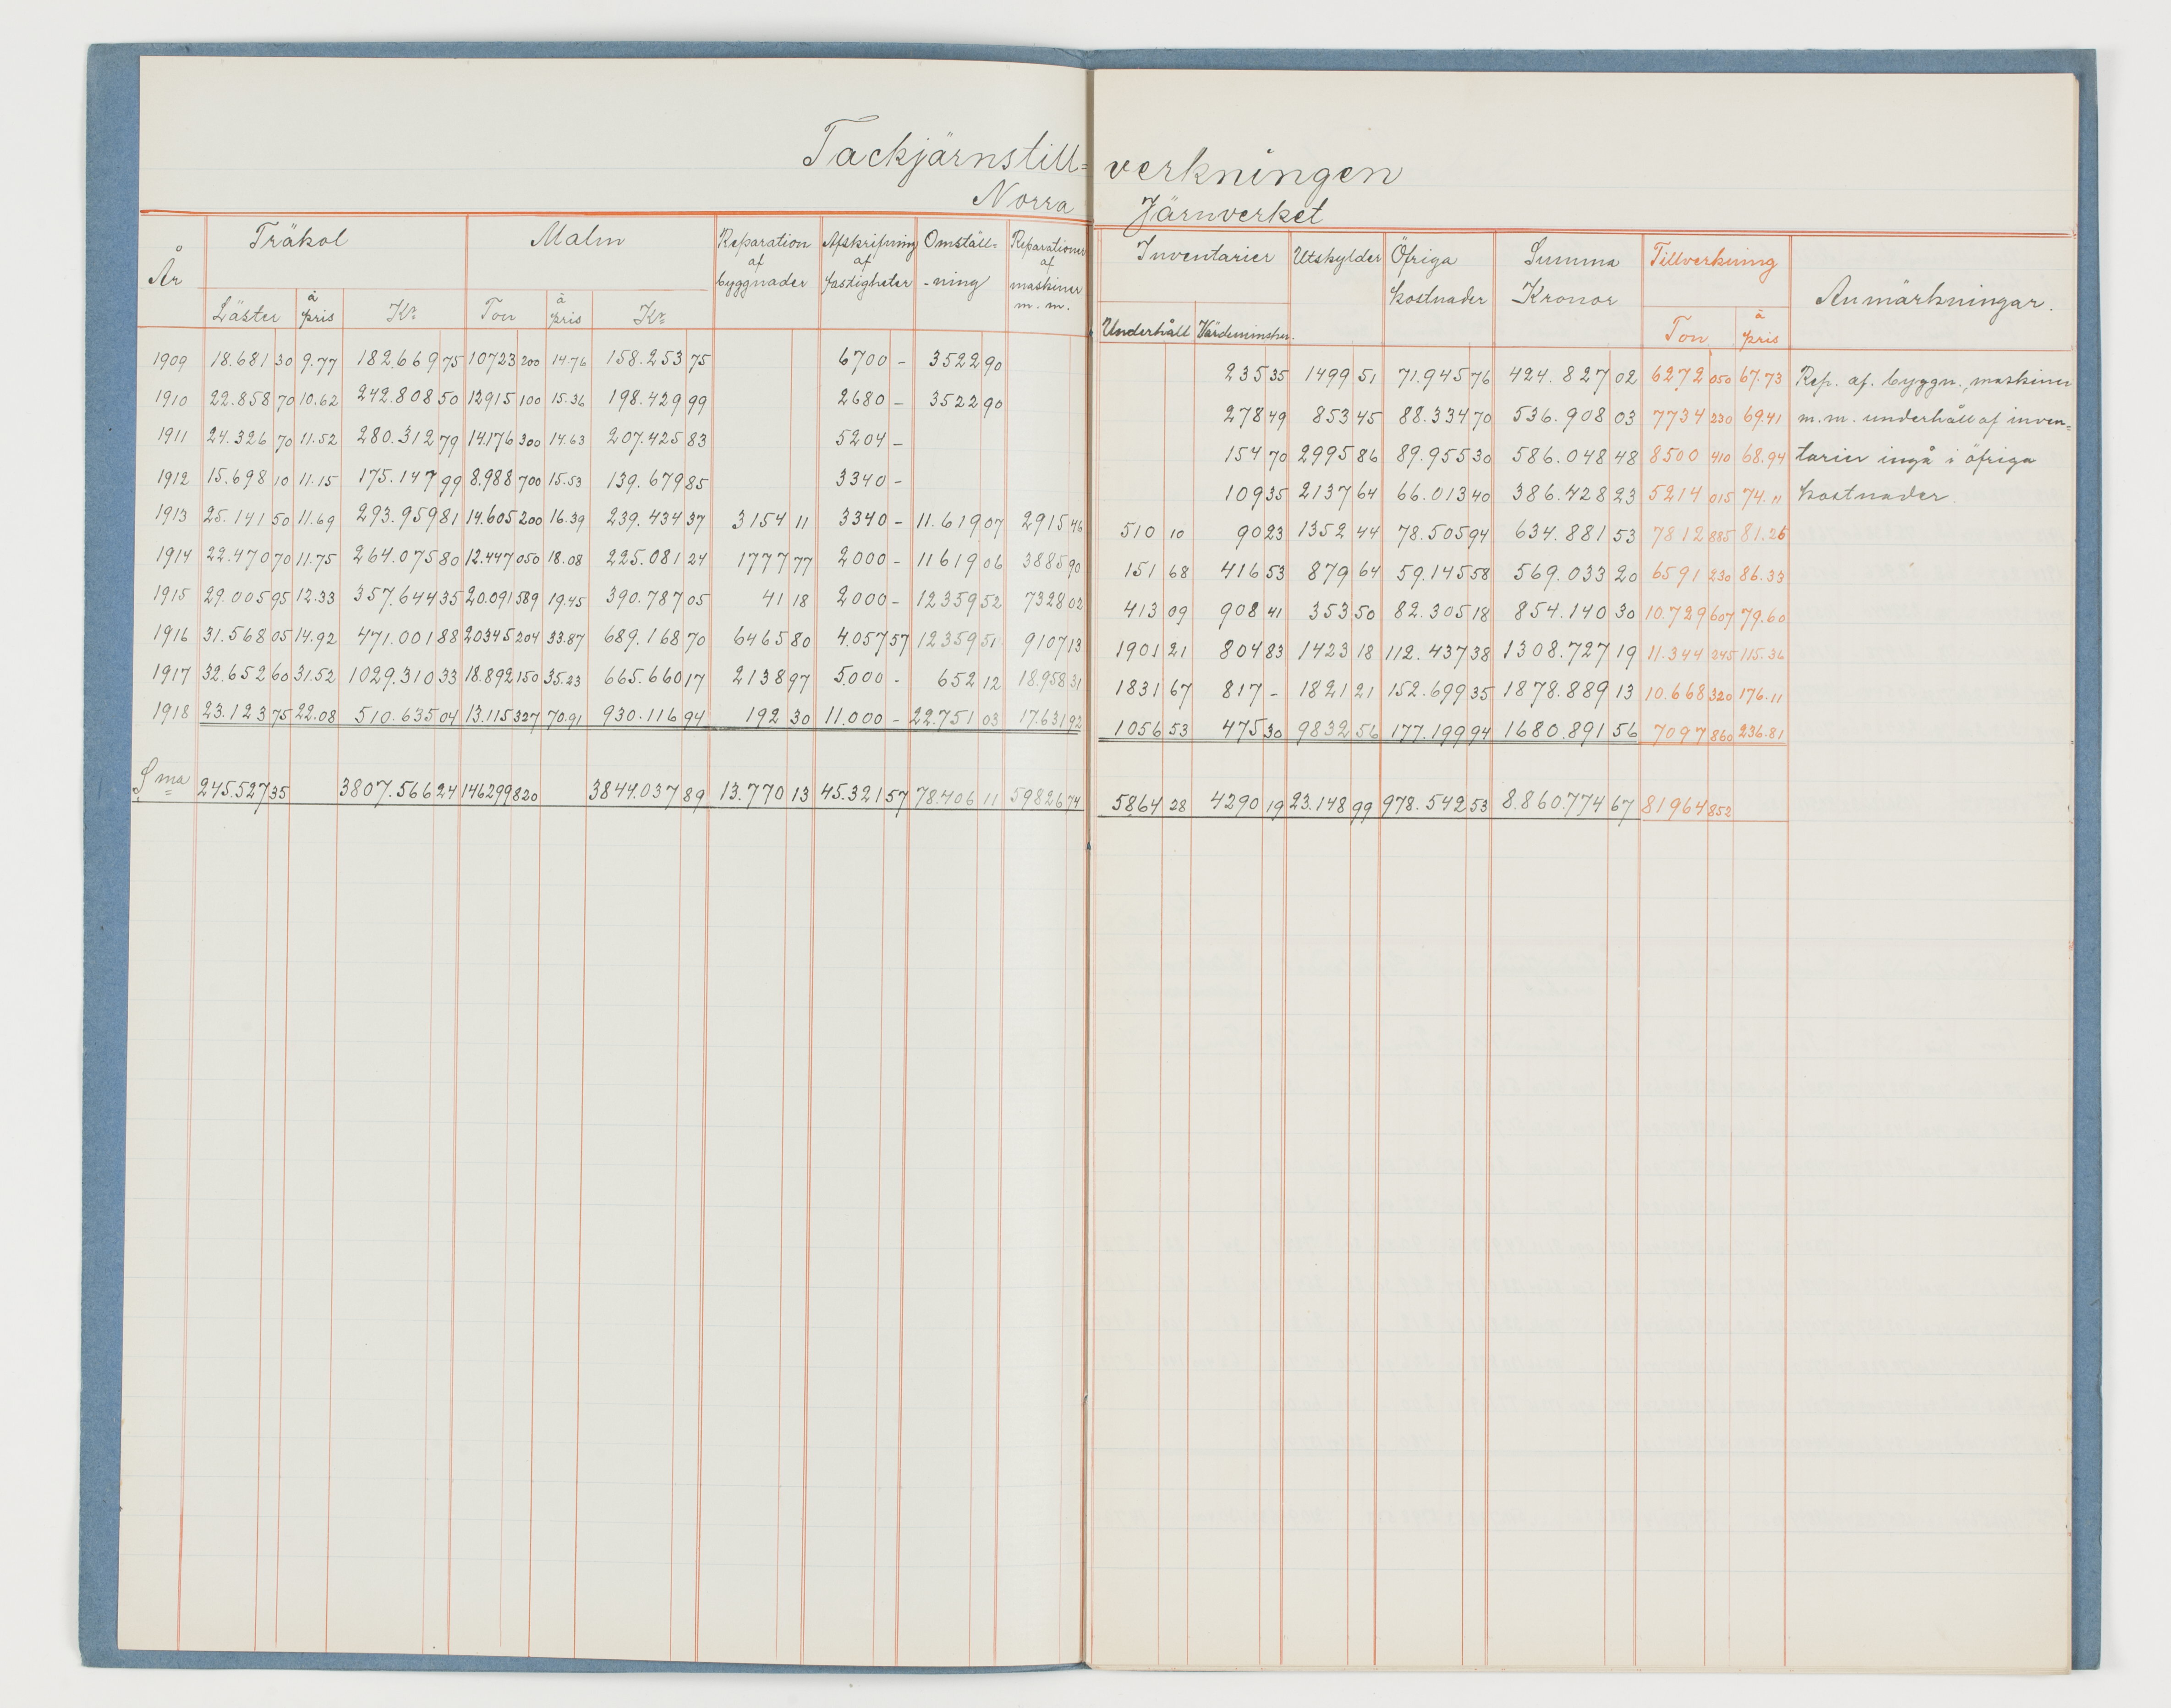 Tackjärnstill= verkningen
Norra Järnverket
År Träkol Malm Reparation af byggnader Afskrifning af fastigheter Omställ=-ning Reparationer af maskiner m.m. Inventarier Utskylder Öfriga kostnader Summa Kronor Tillverkning Anmärkningar.
Läster à pris Kr Ton à pris Kr Underhåll Värdeminskn. Ton à pris
1909 18.681 30 9.77 182.669 75 10723 200 14.76 158.253 75 6700 - 3522 90 235 35 1499 51 71.945 76 424.827 02 6272 050 67.73 Rep. af. byggn., maskiner
1910 22.858 70 10.62 242.808 50 12915 100 15.36 198.429 99 2680 - 3522 90 278 49 853 45 88.334 70 536.908 03 7734 230 69.41 m.m. underhåll af inven=
1911 24.326 70 11.52 280.312 79 14.176 300 14.63 207.425 83 5204 - 154 70 2995 86 89.955 30 586.048 48 8500 410 68.94 tarier ingå i öfriga
1912 15.698 10 11.15 175.147 99 8.988 700 15.53 139.679 85 3340 - 109 35 2137 64 66.013 40 386.428 23 5214 015 74.11 kostnader.
1913 25.141 50 11.69 293.959 81 14.605 200 16.39 239.434 37 3154 11 3340 - 11.619 07 2915 46 510 10 90 23 1352 44 78.505 94 634.881 53 7812 885 81.26
1914 22.470 70 11.75 264.075 80 12.447 050 18.08 225.081 24 1777 77 2000 - 11619 06 3885 90 151 68 416 53 879 64 59.145 58 569.033 20 6591 230 86.33
1915 29.005 95 12.33 357.644 35 20.091 589 19.45 390.787 05 41 18 2000 - 12359 52 7328 02 413 09 908 41 353 50 82.305 18 854.140 30 10.729 607 79.60
1916 31.568 05 14.92 471.001 88 20345 204 33.87 689.168 70 6465 80 4.057 57 12359 51 9107 13 1901 21 804 83 1423 18 112.437 38 1308.727 19 11.344 245 115.36
1917 32.652 60 31.52 1029.310 33 18.892 150 35.23 665.660 17 2138 97 5.000 - 652 12 18.958 31 1831 67 817 - 1821 21 152.699 35 1878.889 13 10.668 320 176.11
1918 23.123 75 22.08 510.635 04 13.115 327 70.91 930.116 94 192 30 11.000 - 22.751 03 17.631 92 1056 53 475 30 9832 56 177.199 94 1680.891 56 7097 860 236.81
Sma 245.527 35 3807.566 24 146299 820 3844.037 89 13.770 13 45.321 57 78.406 11 59826 74 5864 28 4290 19 23.148 99 978.542 53 8.860.774 67 81964 852